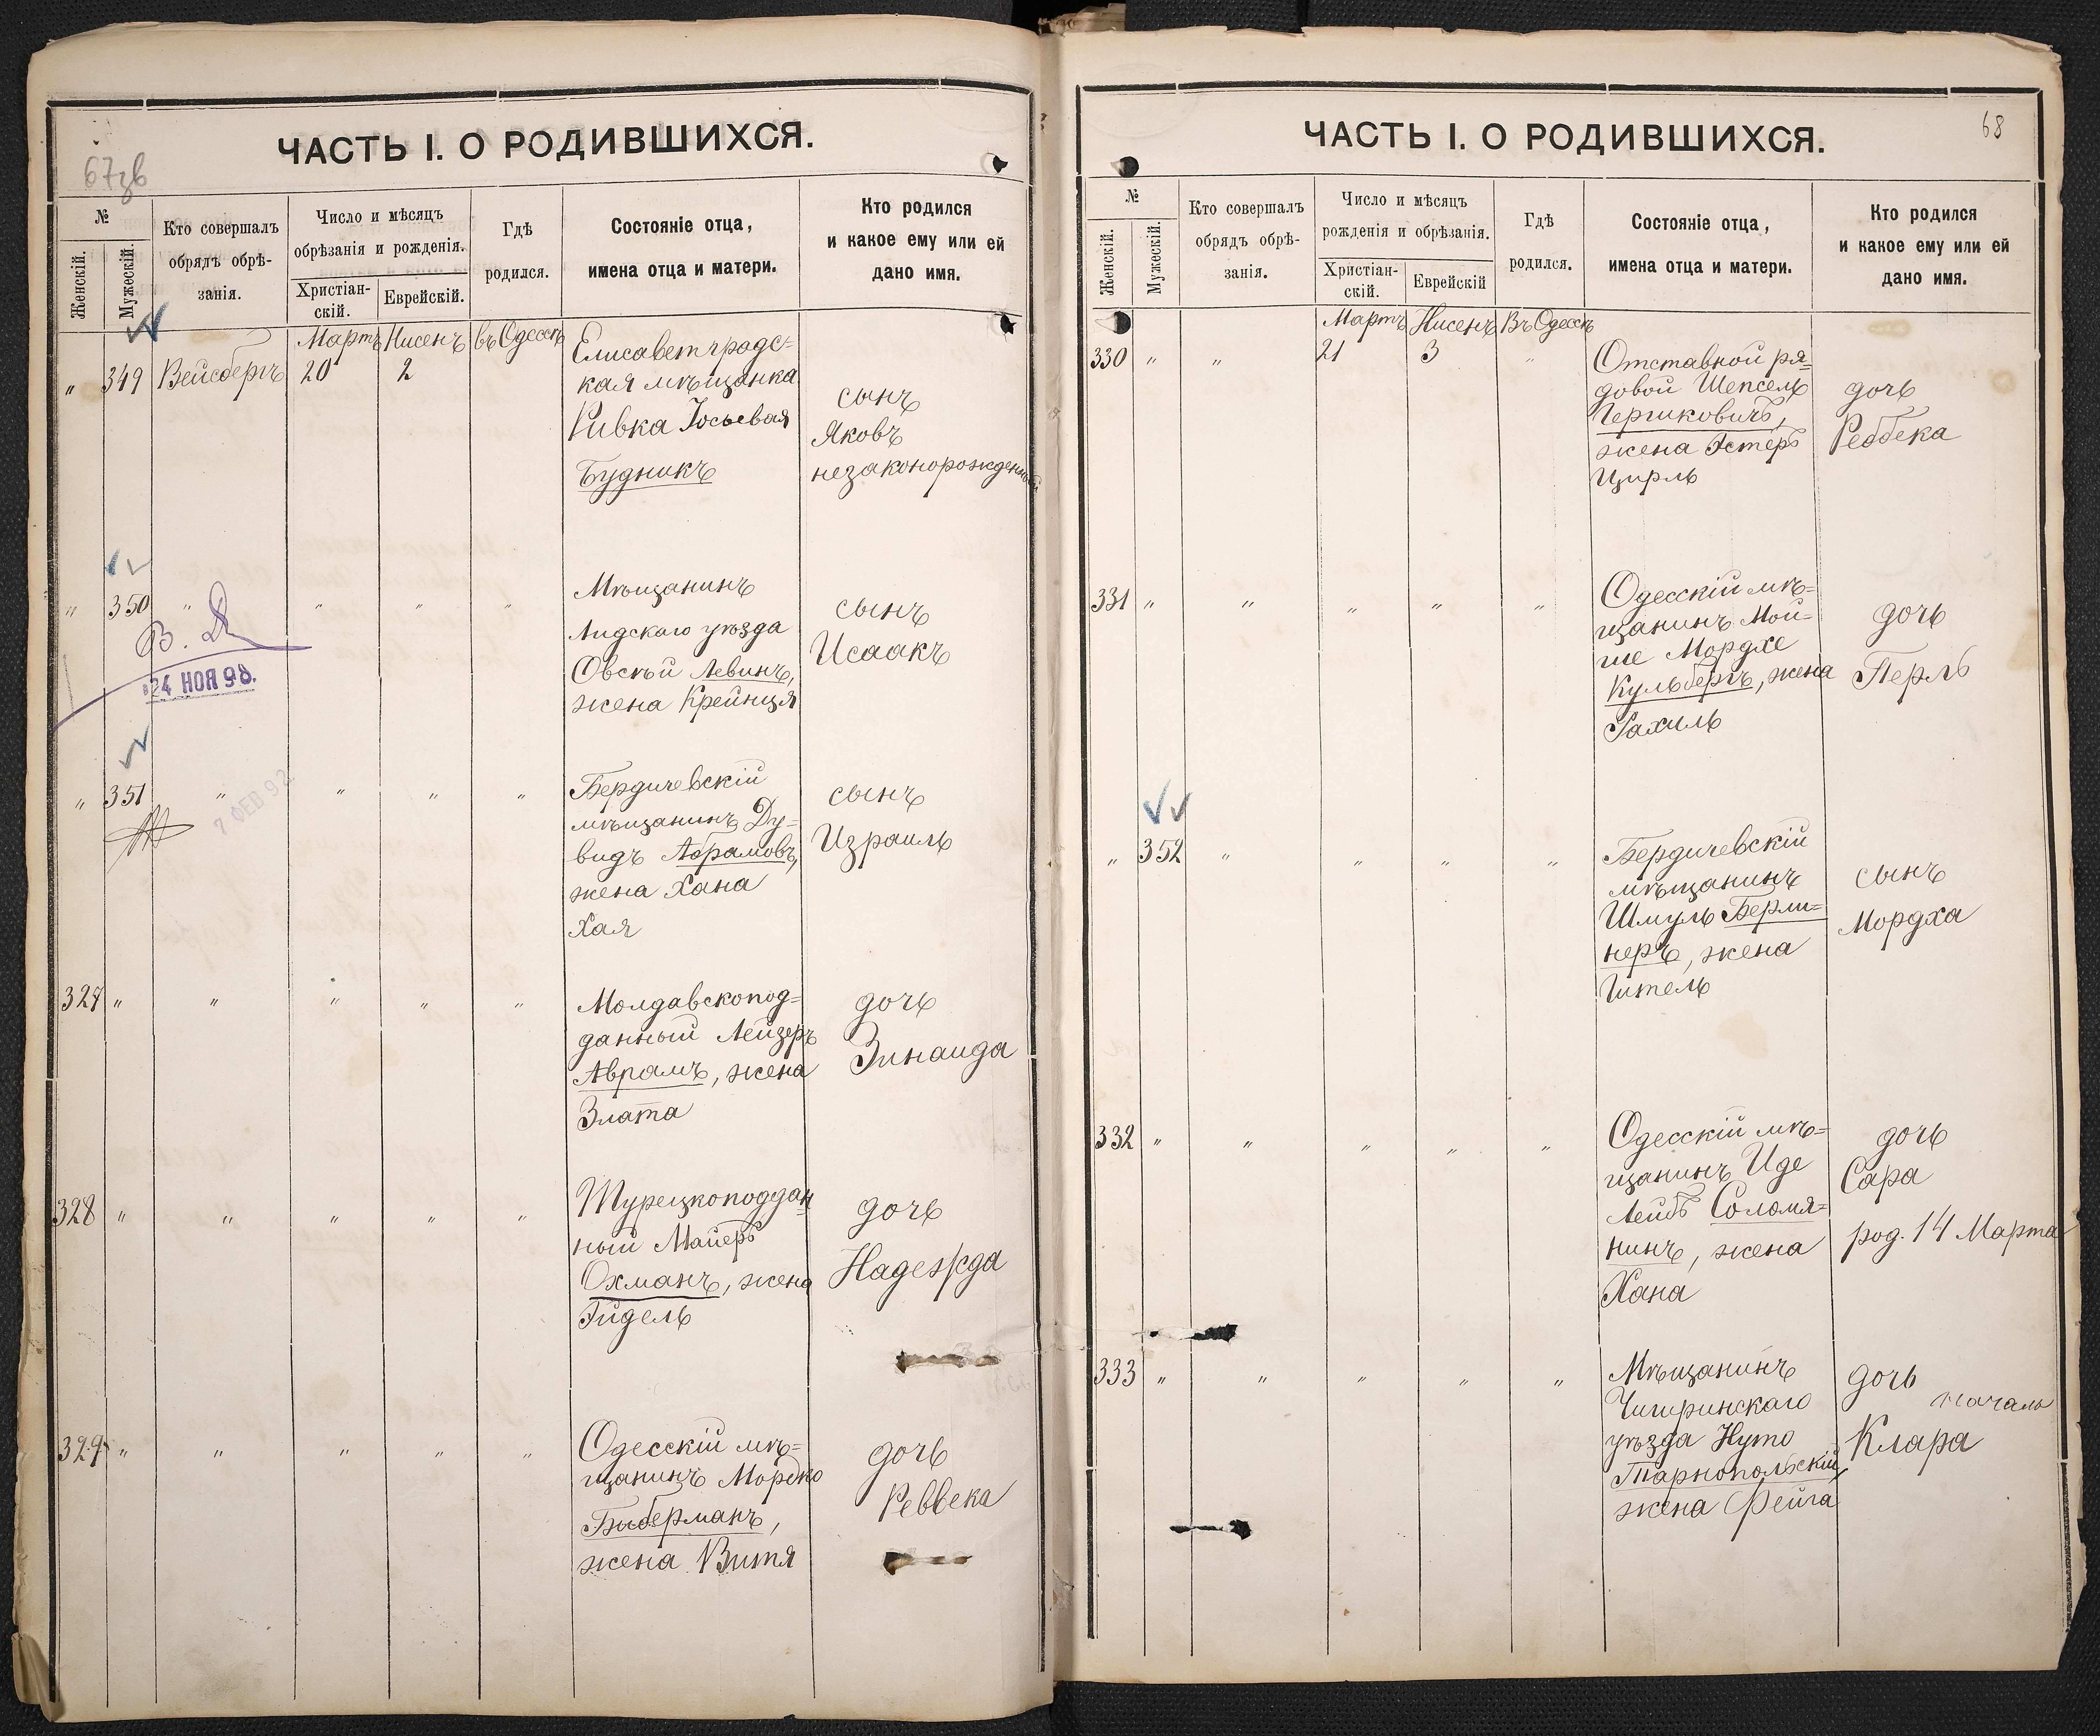 ЧАСТЬ I. О РОДИВШИХСЯ.
67зв
№
Женскій.
Мужескій.
Кто совершалъ
обрядъ обрѣ-
занія.
Число и мѣсяцъ
обрѣзанія и рожденія.
Христіан-
скій.
Еврейскій.
Гдѣ
родился.
Состояніе отца,
имена отца и матери.
Кто родился
и какое ему или ей
дано имя.
Мартъ Нисенъ въ Одессѣ
" 349 Вейсбергъ 20 2
Елисаветградс-
кая мѣщанка
Ривка Іосьевая
Будникъ
сынъ
Яковъ
незаконорожденный
" 350 " " " "
Мѣщанинъ
Лидскаго уѣзда
Овсѣй Левинъ,
жена Крейнця
сынъ
Исаакъ
В. Д
24 НОЯ 98.
" 351 " " " "
7 ФЕВ 92
Бердичевскій
мѣщанинъ Ду-
видъ Абрамовъ,
жена Хана
Хая
сынъ
Израиль
327 " " " " "
Молдавскопод-
данный Лейзеръ
Аврамъ, жена
Злата
дочь
Зинаида
328 " " " " "
Турецкоподдан
ный Маіеръ
Охманъ, жена
Эйдель
дочь
Надежда
329 " " " " "
Одесскій мѣ-
щанинъ Мордко
Биберманъ,
жена Витя
дочь
Реввека
ЧАСТЬ I. О РОДИВШИХСЯ.
68
№
Женскій.
Мужескій.
Кто совершалъ
обрядъ обрѣ-
занія.
Число и мѣсяцъ
рожденія и обрѣзанія.
Христіан-
скій.
Еврейскій
Гдѣ
родился.
Состояніе отца,
имена отца и матери.
Кто родился
и какое ему или ей
дано имя.
Мартъ Нисенъ Въ Одессѣ
330 " " 21 3 "
Отставной ря-
довой Шепсель
Гершковичъ,
жена Эстеръ
Цирль
дочь
Реббека
331 " " " " "
Одесскій мѣ-
щанинъ Мой-
ше Мордхе
Кульбергъ, жена
Рахиль
дочь
Перль
" 352 " " " "
Бердичевскій
мѣщанинъ
Шмуль Берли-
неръ, жена
Гитель
сынъ
Мордха
332 " " " " "
Одесскій мѣ-
щанинъ Иде
Лейбъ Соломя-
нинъ, жена
Хана
дочь
Сара
род. 14 Марта
333 " " " " "
Мѣщанинъ
Чигиринскаго
уѣзда Нуто
Тарнопольскій,
жена Фейга
дочь
Клара